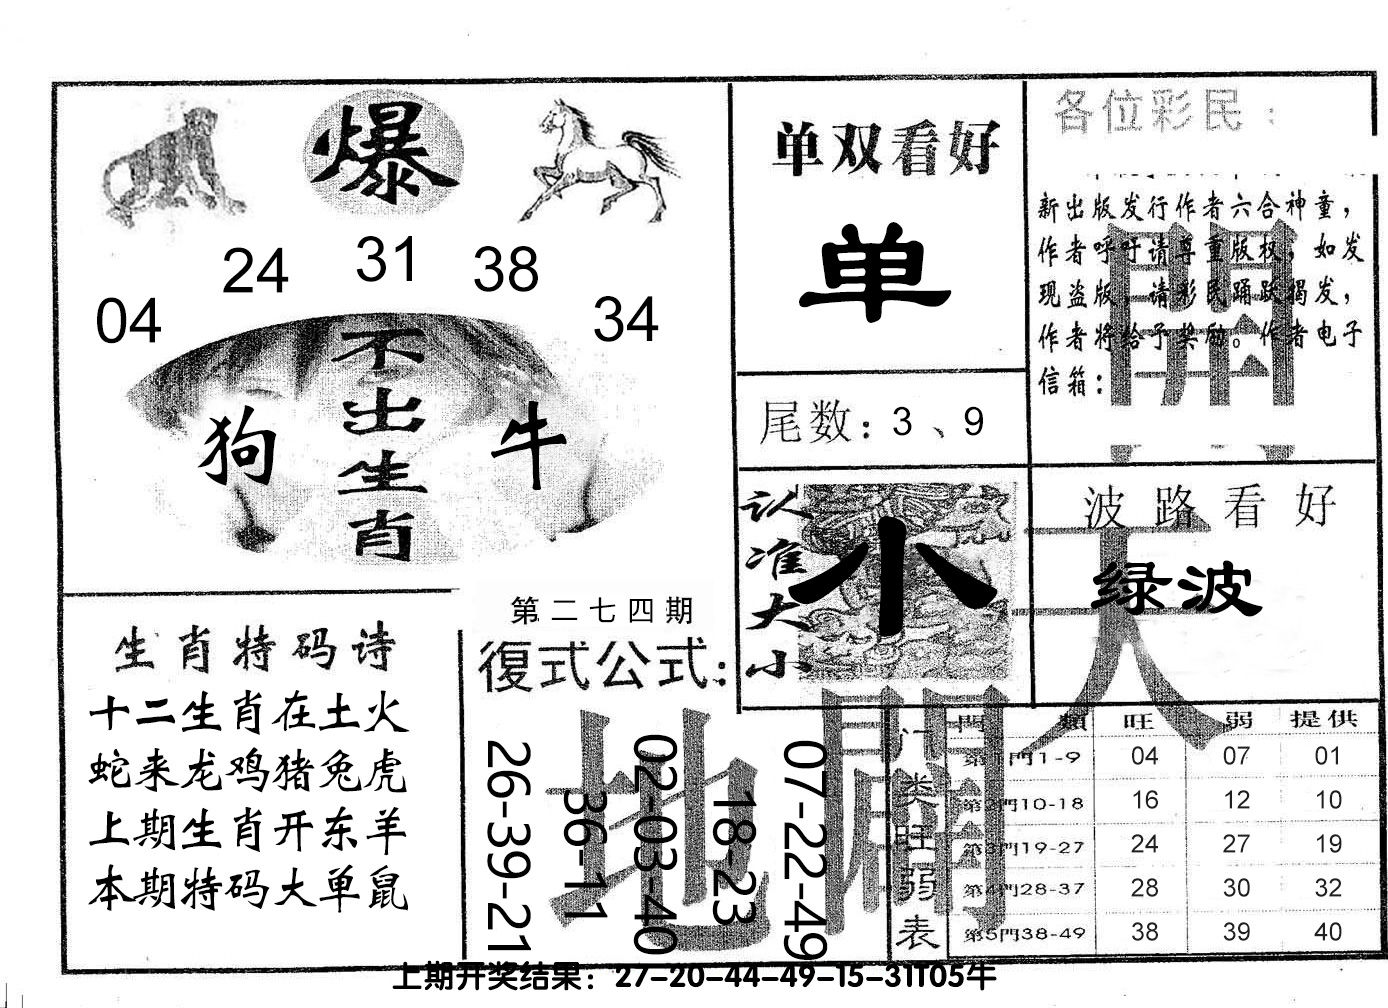 爆
24 31 38
04 34
不出生肖
狗 牛
单双看好
单
尾数：3、9
各位彩民：
新出版发行作者六合神童，
作者呼吁请尊重版权，如发
现盗版，请彩民踊跃揭发，
作者将给予奖励。作者电子
信箱：
認准大小
小
波路看好
绿波
天
地
開
生肖特码诗
十二生肖在土火
蛇来龙鸡猪兔虎
上期生肖开东羊
本期特码大单鼠
第二七四期
復式公式：
26-39-21
36-11
02-03-40
18-23
07-22-49
门类旺弱表
門類 旺 弱 提供
第1門1-9 04 07 01
第2門10-18 16 12 10
第3門19-27 24 27 19
第4門28-37 28 30 32
第5門38-49 38 39 40
上期开奖结果：27-20-44-49-15-31T05牛